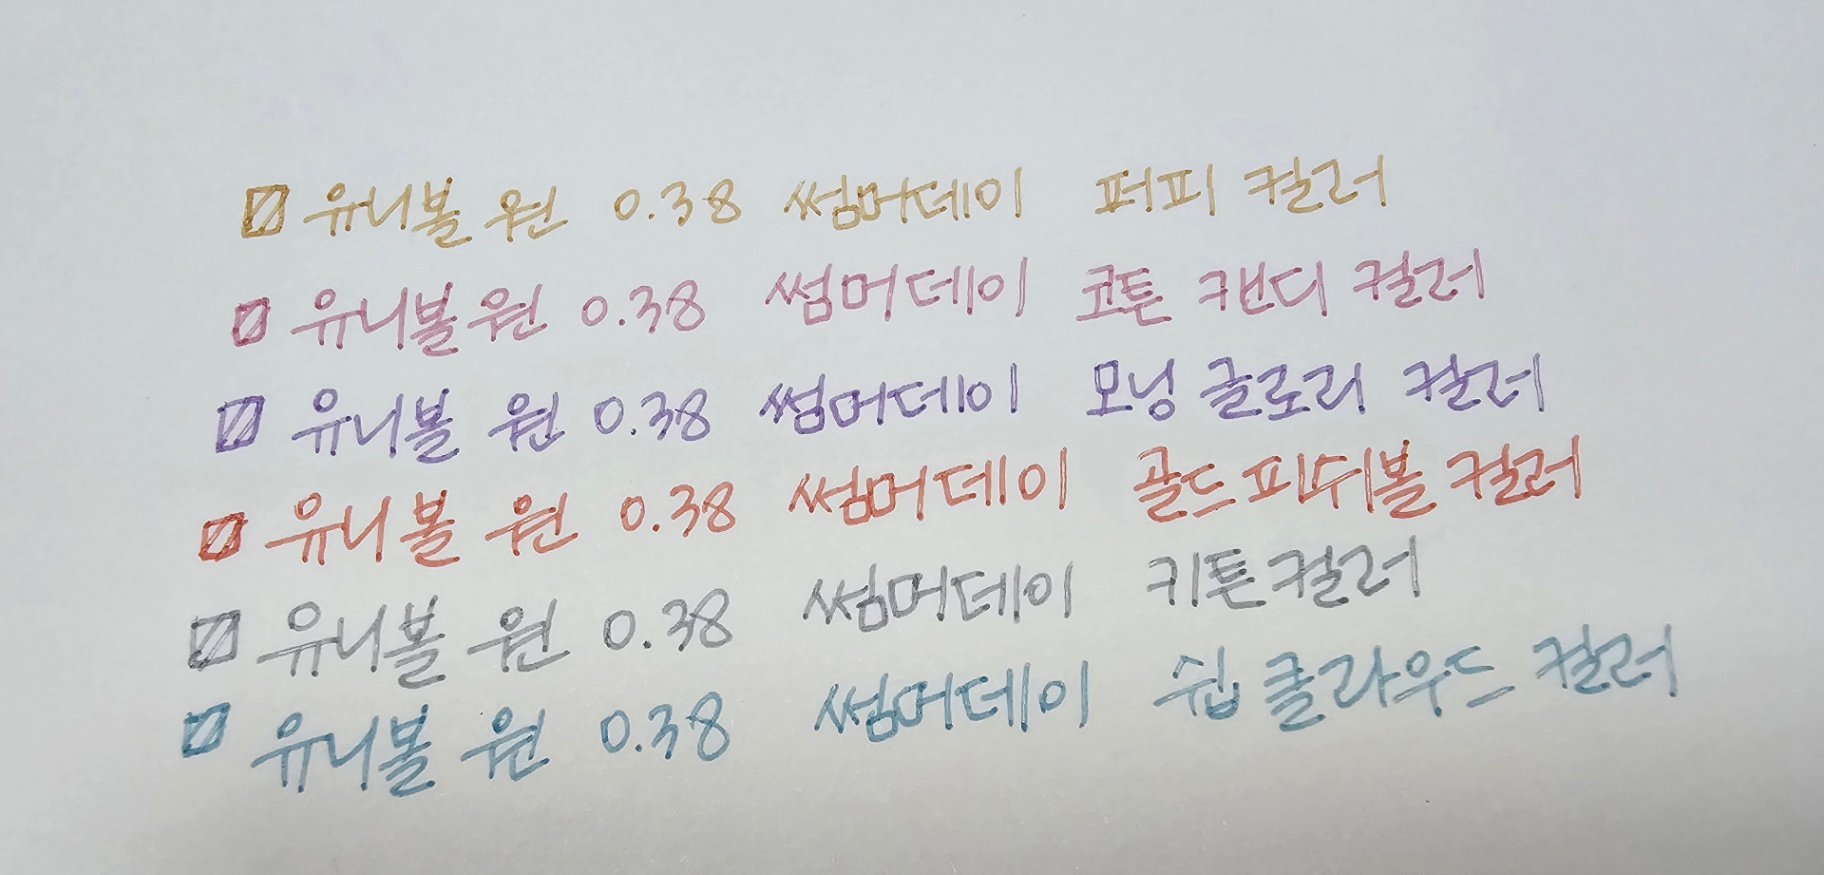 유니볼 원 0.38 썸머데이 퍼피 컬러
유니볼 원 0.38 썸머데이 코튼 캔디 컬러
유니볼 원 0.38 썸머데이 모닝 글로리 컬러
유니볼 원 0.38 썸머데이 골드피쉬볼 컬러
유니볼 원 0.38 썸머데이 키튼 컬러
유니볼 원 0.38 썸머데이 쉽 클라우드 컬러